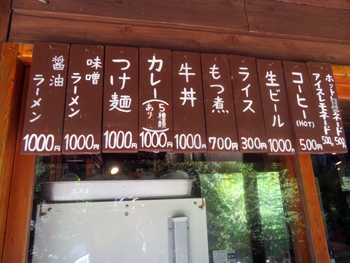 醤油
ラーメン
1000円
味噌
ラーメン
1000円
つけ麺
1000円
カレー
(5種類あり)
1000円
牛丼
1000円
もつ煮
700円
ライス
300円
生ビール
1000円
コーヒー
(HOT)
500円
アイスレモネード
500円